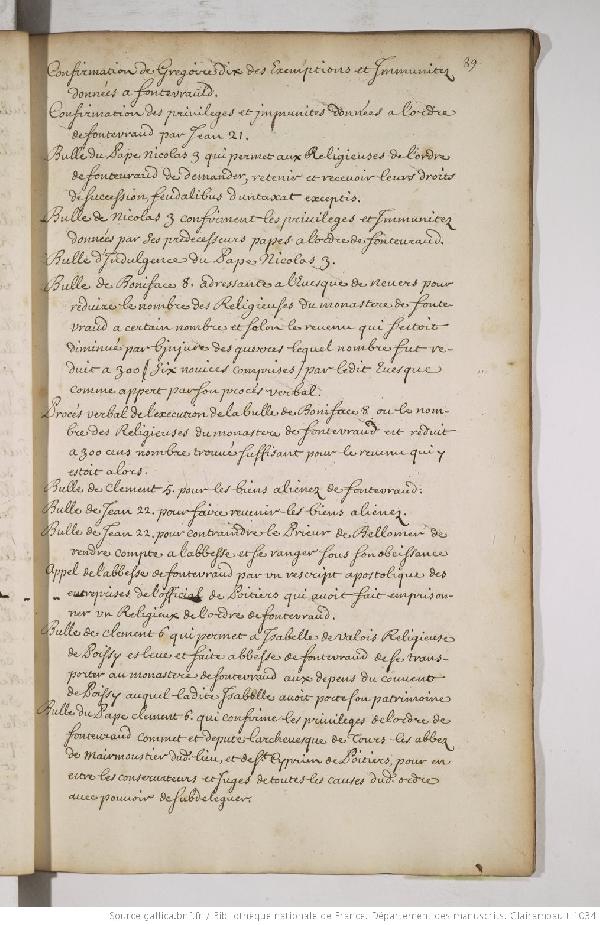 89
Confirmation de Gregoire dix des Exemptions et Immunitez
données a fontevrauld.
Confirmation des privileges et jmmunites données a l'ordre
de fontevraud par Jean 21.
Bulle du Pape Nicolas 3 qui permet aux Religieuses de l'ordre
de fontevraud de demander, retenir et recevoir leurs droits
de succession, feudalibus duntaxat exceptis.
Bulle de Nicolas 3 confirment les privileges et Immunitez
données par ses predecesseurs papes a l'ordre de fonteuraud.
Bulle d'Indulgence du Pape Nicolas 3.
Bulle de Boniface 8. adressante a l'Euesque de neuers pour
reduire le nombre des Religieuses du monastere de fonte-
vraud a certain nombre et selon le reuenu qui s'estoit
diminué par l'injure des guerres lequel nombre fut re-
duit a 300 / six novices comprises / par ledit Euesque
comme appert par son procés verbal.
Procés verbal de l'execution de la bulle de Boniface 8 ou le nom-
bre des Religieuses du monastere de fontevraud est reduit
a 300 nombre trouvé suffisant pour le revenu qui y
estoit alors.
Bulle de Clement 5. pour les biens alienez de fontevraud.
Bulle de Jean 22. pour faire reuenir les biens alienez.
Bulle de Jean 22. pour contraindre le Prieur de Bellomer de
rendre compte a l'abbesse et se ranger sous son obeissance
Appel de l'abbesse de fonteuraud par vn rescript apostolique des
entreprises de l'official de Poitiers qui auoit fait emprison-
ner vn Religieux de l'ordre de fontevraud.
Bulle de Clement 6 qui permet a Isabelle de Valois Religieuse
de Poissy esleue et faite abbesse de fontevraud de se trans-
porter au monastere de fontevraud aux depens du couuent
de Poissy auquel ladite Isabelle auoit porté son patrimoine
Bulle du Pape Clement 6. qui confirme les privileges de l'ordre de
fonteuraud commet et depute l'archeuesque de Tours les abbez
de Mairmoustier dud. lieu, et de St. Cyprien de Poitiers, pour en
estre les conseruateurs et Juges de toutes les causes dud. ordre
auec pouuoir de subdeleguer.
Source gallica.bnf.fr / Bibliothèque nationale de France. Département des manuscrits. Clairambault 1034